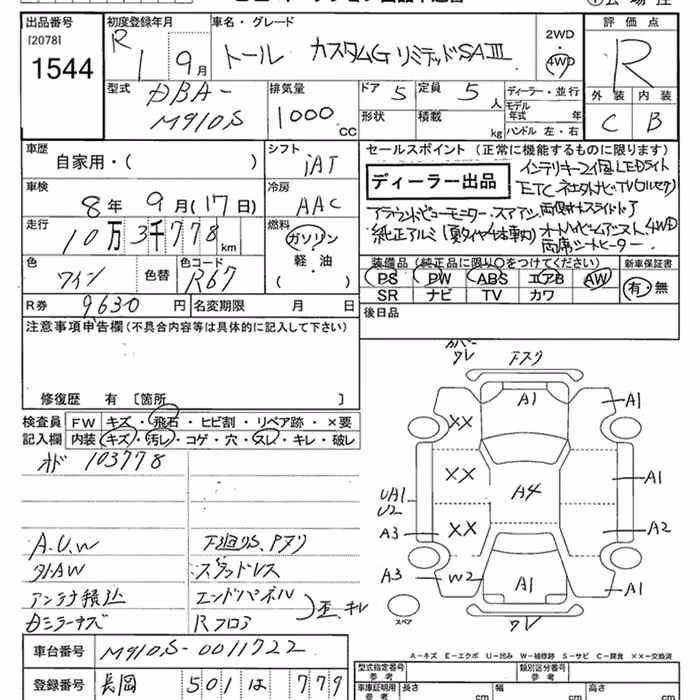 出品番号
[2078]
1544
初度登録年月
R1 9月
車名・グレード
トール カスタムG リミテッドSAⅢ
2WD
・
4WD
評価点
R
外装 内装
C B
型式
DBA-
M910S
排気量
1000 cc
ドア 5
定員 5 人
形状
積載 kg
ディーラー・並行
モデル年式 年
ハンドル 左・右
車歴
自家用・( )
シフト
IAT
車検
8年 9月(17日)
冷房
AAC
走行
10万3千778km
燃料
ガソリン
軽・油
( )
色
ワイン
色替
色コード
R67
R券 9630円
名変期限 月 日
セールスポイント (正常に機能するものに限ります)
ディーラー出品
インテリキー2個 LEDライト
ETC
装備品(純正品に限り○をつけてください)
PS PW ABS エアB AW
SR ナビ TV カワ
新車保証書
有・無
後日品
注意事項申告欄(不具合内容等は具体的に記入して下さい)
修復歴 有 〔箇所 〕
検査員 FW キズ・飛石・ヒビ割・リペア跡・×要
記入欄 内装 キズ・汚レ・コゲ・穴・スレ・キレ・破レ
オド 103778
A.U.W
外AW
アンテナ積込
下廻りS、Pヌリ
スタッドレス
エンドパネル
Rフロア
歪、キレ
カバー
ワレ
A1
A1
XX
XX
XX
A4
A1
UA1
U2
A2
A3
A3
W2
A1
A1
ワレ
スペア
A-キズ E-エクボ U-凹み W-補修跡 S-サビ C-腐食 XX-交換済
車台番号 M910S-0011722
登録番号 長岡 501 は 779
型式指定番号
参考
類別区分番号
参考
車庫証明用
参考
長さ cm
幅 cm
高さ cm